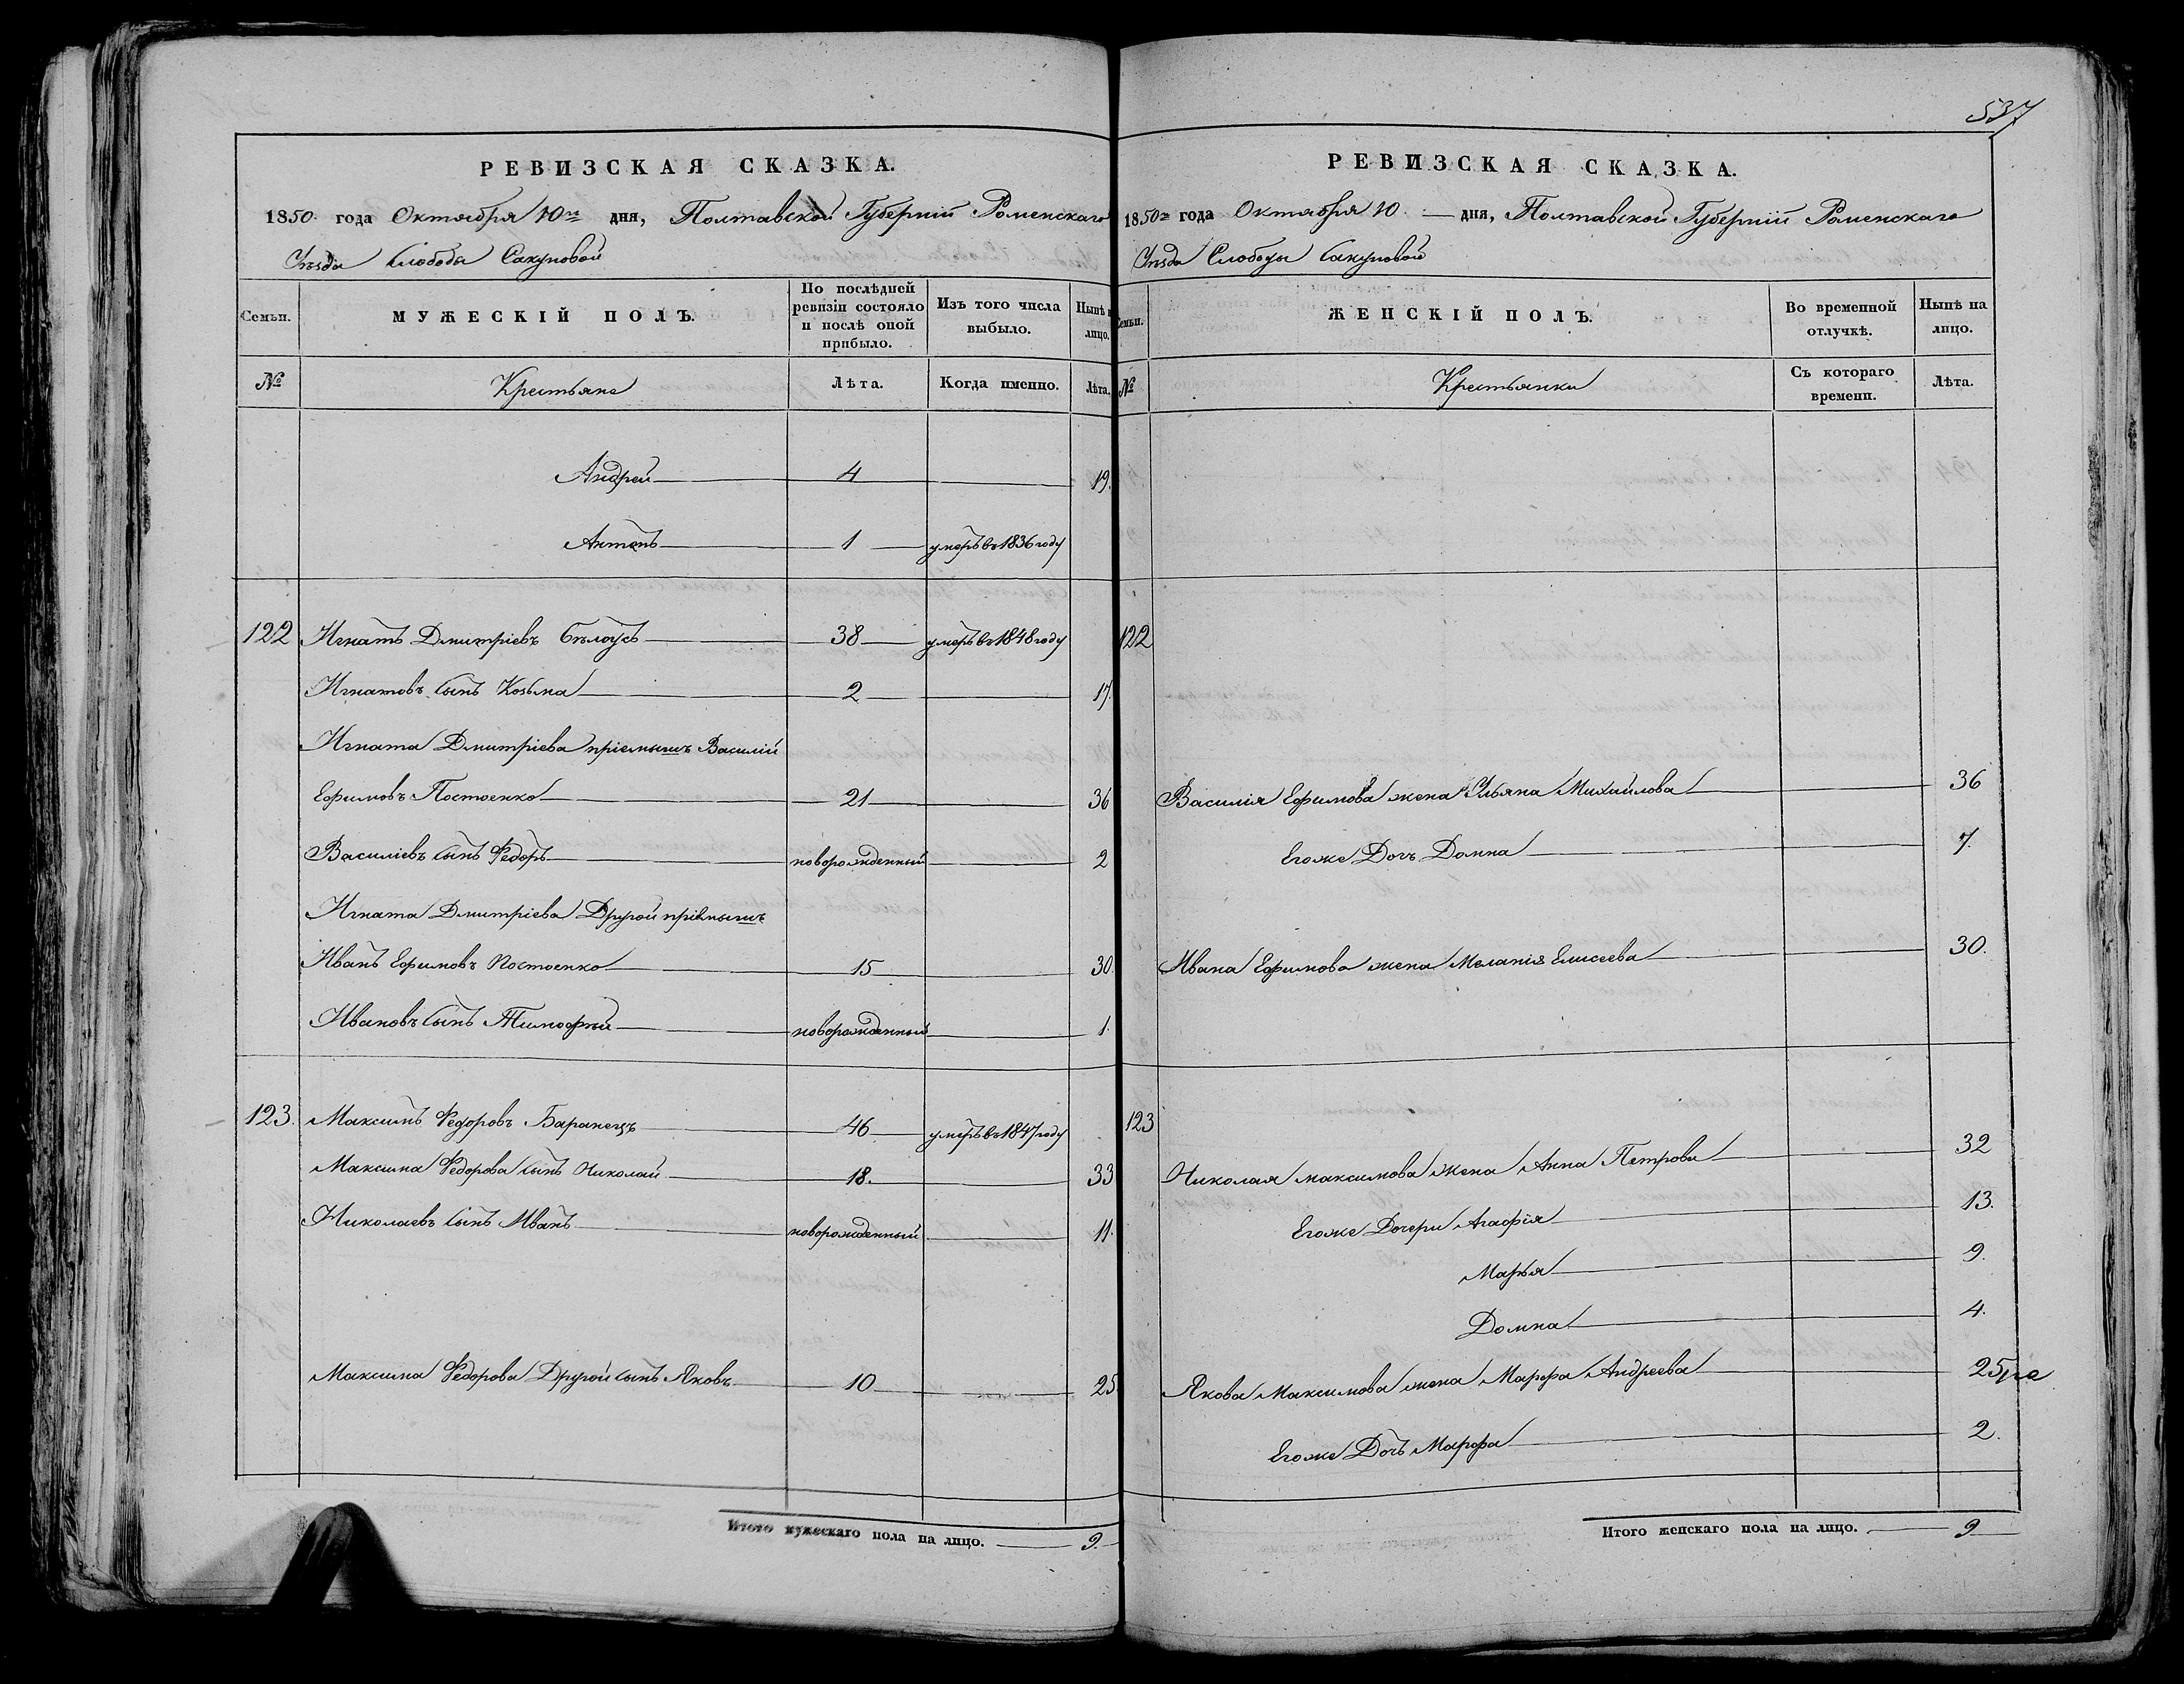 537
РЕВИЗСКАЯ СКАЗКА.
1850. года Октября 10го дня, Полтавской Губерніи Роменскаго
Уѣзда Слободы Сакуновой
Семьи.
МУЖЕСКІЙ ПОЛЪ.
По послѣдней ревизіи состояло и послѣ оной прибыло.
Изъ того числа выбыло.
Нынѣ н лицо.
№
Крестьяне
Лѣта.
Когда именно.
Лѣта.
Андрей 4 19.
Антонъ 1 умеръ въ 1836 году
122 Игнатъ Дмитріевъ Бѣлоусъ 38 умеръ въ 1848 году
Игнатовъ сынъ Козьма 2 17.
Игната Дмитріева пріемышъ Василій
Ефимовъ Постоенко 21 36
Василіевъ сынъ Федоръ новорожденный 2
Игната Дмитріева Другой пріемышъ
Иванъ Ефимовъ Постоенко 15 30.
Ивановъ сынъ Тимофѣй новорожденный 1.
123. Максимъ Федоровъ Баранецъ 46 умеръ въ 1847 году
Максима Федорова сынъ Николай 18. 33
Николаевъ сынъ Иванъ новорожденный 11.
Максима Федорова Другой сынъ Яковъ 10 25
Итого мужескаго пола на лицо. 9.
РЕВИЗСКАЯ СКАЗКА.
1850го года Октября 10. дня, Полтавской Губерніи Роменскаго
Уѣзда Слободы Сакуновой
Семьи.
ЖЕНСКІЙ ПОЛЪ.
Во временной отлучкѣ.
Нынѣ на лицо.
№
Крестьянки
Съ котораго времени.
Лѣта.
122
Василія Ефимова жена Ульяна Михайлова 36
Егоже Дочь Домна 7.
Ивана Ефимова жена Меланія Елисеева 30.
123
Николая Максимова жена Анна Петрова 32
Егоже Дочери Агафія 13.
Марья 9.
Домна 4.
Якова Максимова жена Марфа Андреева 25
Егоже Дочь Марфа 2.
Итого женскаго пола на лицо. 9